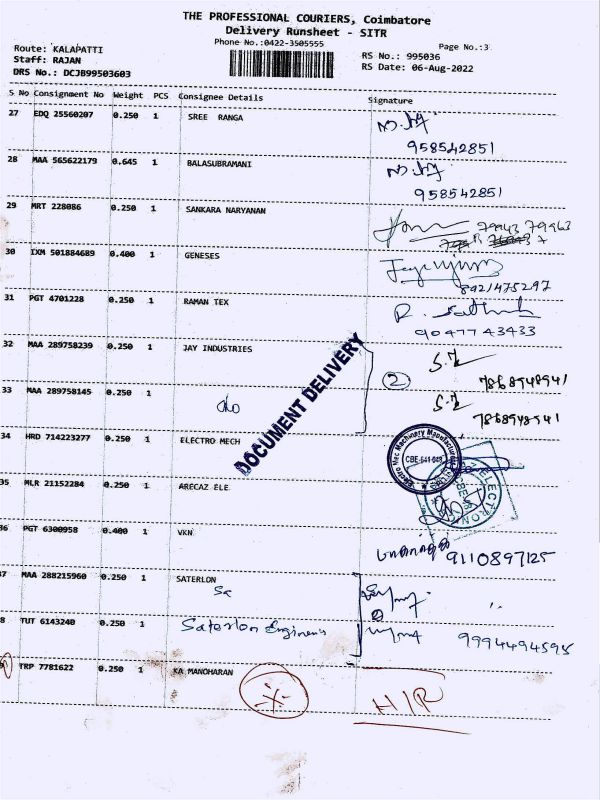 THE PROFESSIONAL COURIERS, Coimbatore
Delivery Runsheet - SITR
Phone No.:0422-3505555
Page No.:3
Route: KALAPATTI
Staff: RAJAN
DRS No.: DCJB99503603
RS No.: 995036
RS Date: 06-Aug-2022
S No Consignment No Weight PCS Consignee Details Signature
27 EDQ 25560207 0.250 1 SREE RANGA
958542851
28 MAA 565622179 0.645 1 BALASUBRAMANI
958542851
29 MRT 228086 0.250 1 SANKARA NARYANAN
79943 79963
30 IXM 501884689 0.400 1 GENESES
8921475297
31 PGT 4701228 0.250 1 RAMAN TEX
9047743433
32 MAA 289758239 0.250 1 JAY INDUSTRIES
7868948941
2
33 MAA 289758145 0.250 1 do
7868948941
DOCUMENT DELIVERY
34 HRD 714223277 0.250 1 ELECTRO MECH
Electro Mec Machinery Manufacturing
CBE-641 048
35 MLR 21152284 0.250 1 ARECAZ ELE
36 PGT 6300958 0.400 1 VKN
9110897125
37 MAA 288215960 0.250 1 SATERLON
Sa
38 TUT 6143240 0.250 1 Saterlon Engineers
2
9994494595
39 TRP 7781622 0.250 1 KA MANOHARAN
H/R